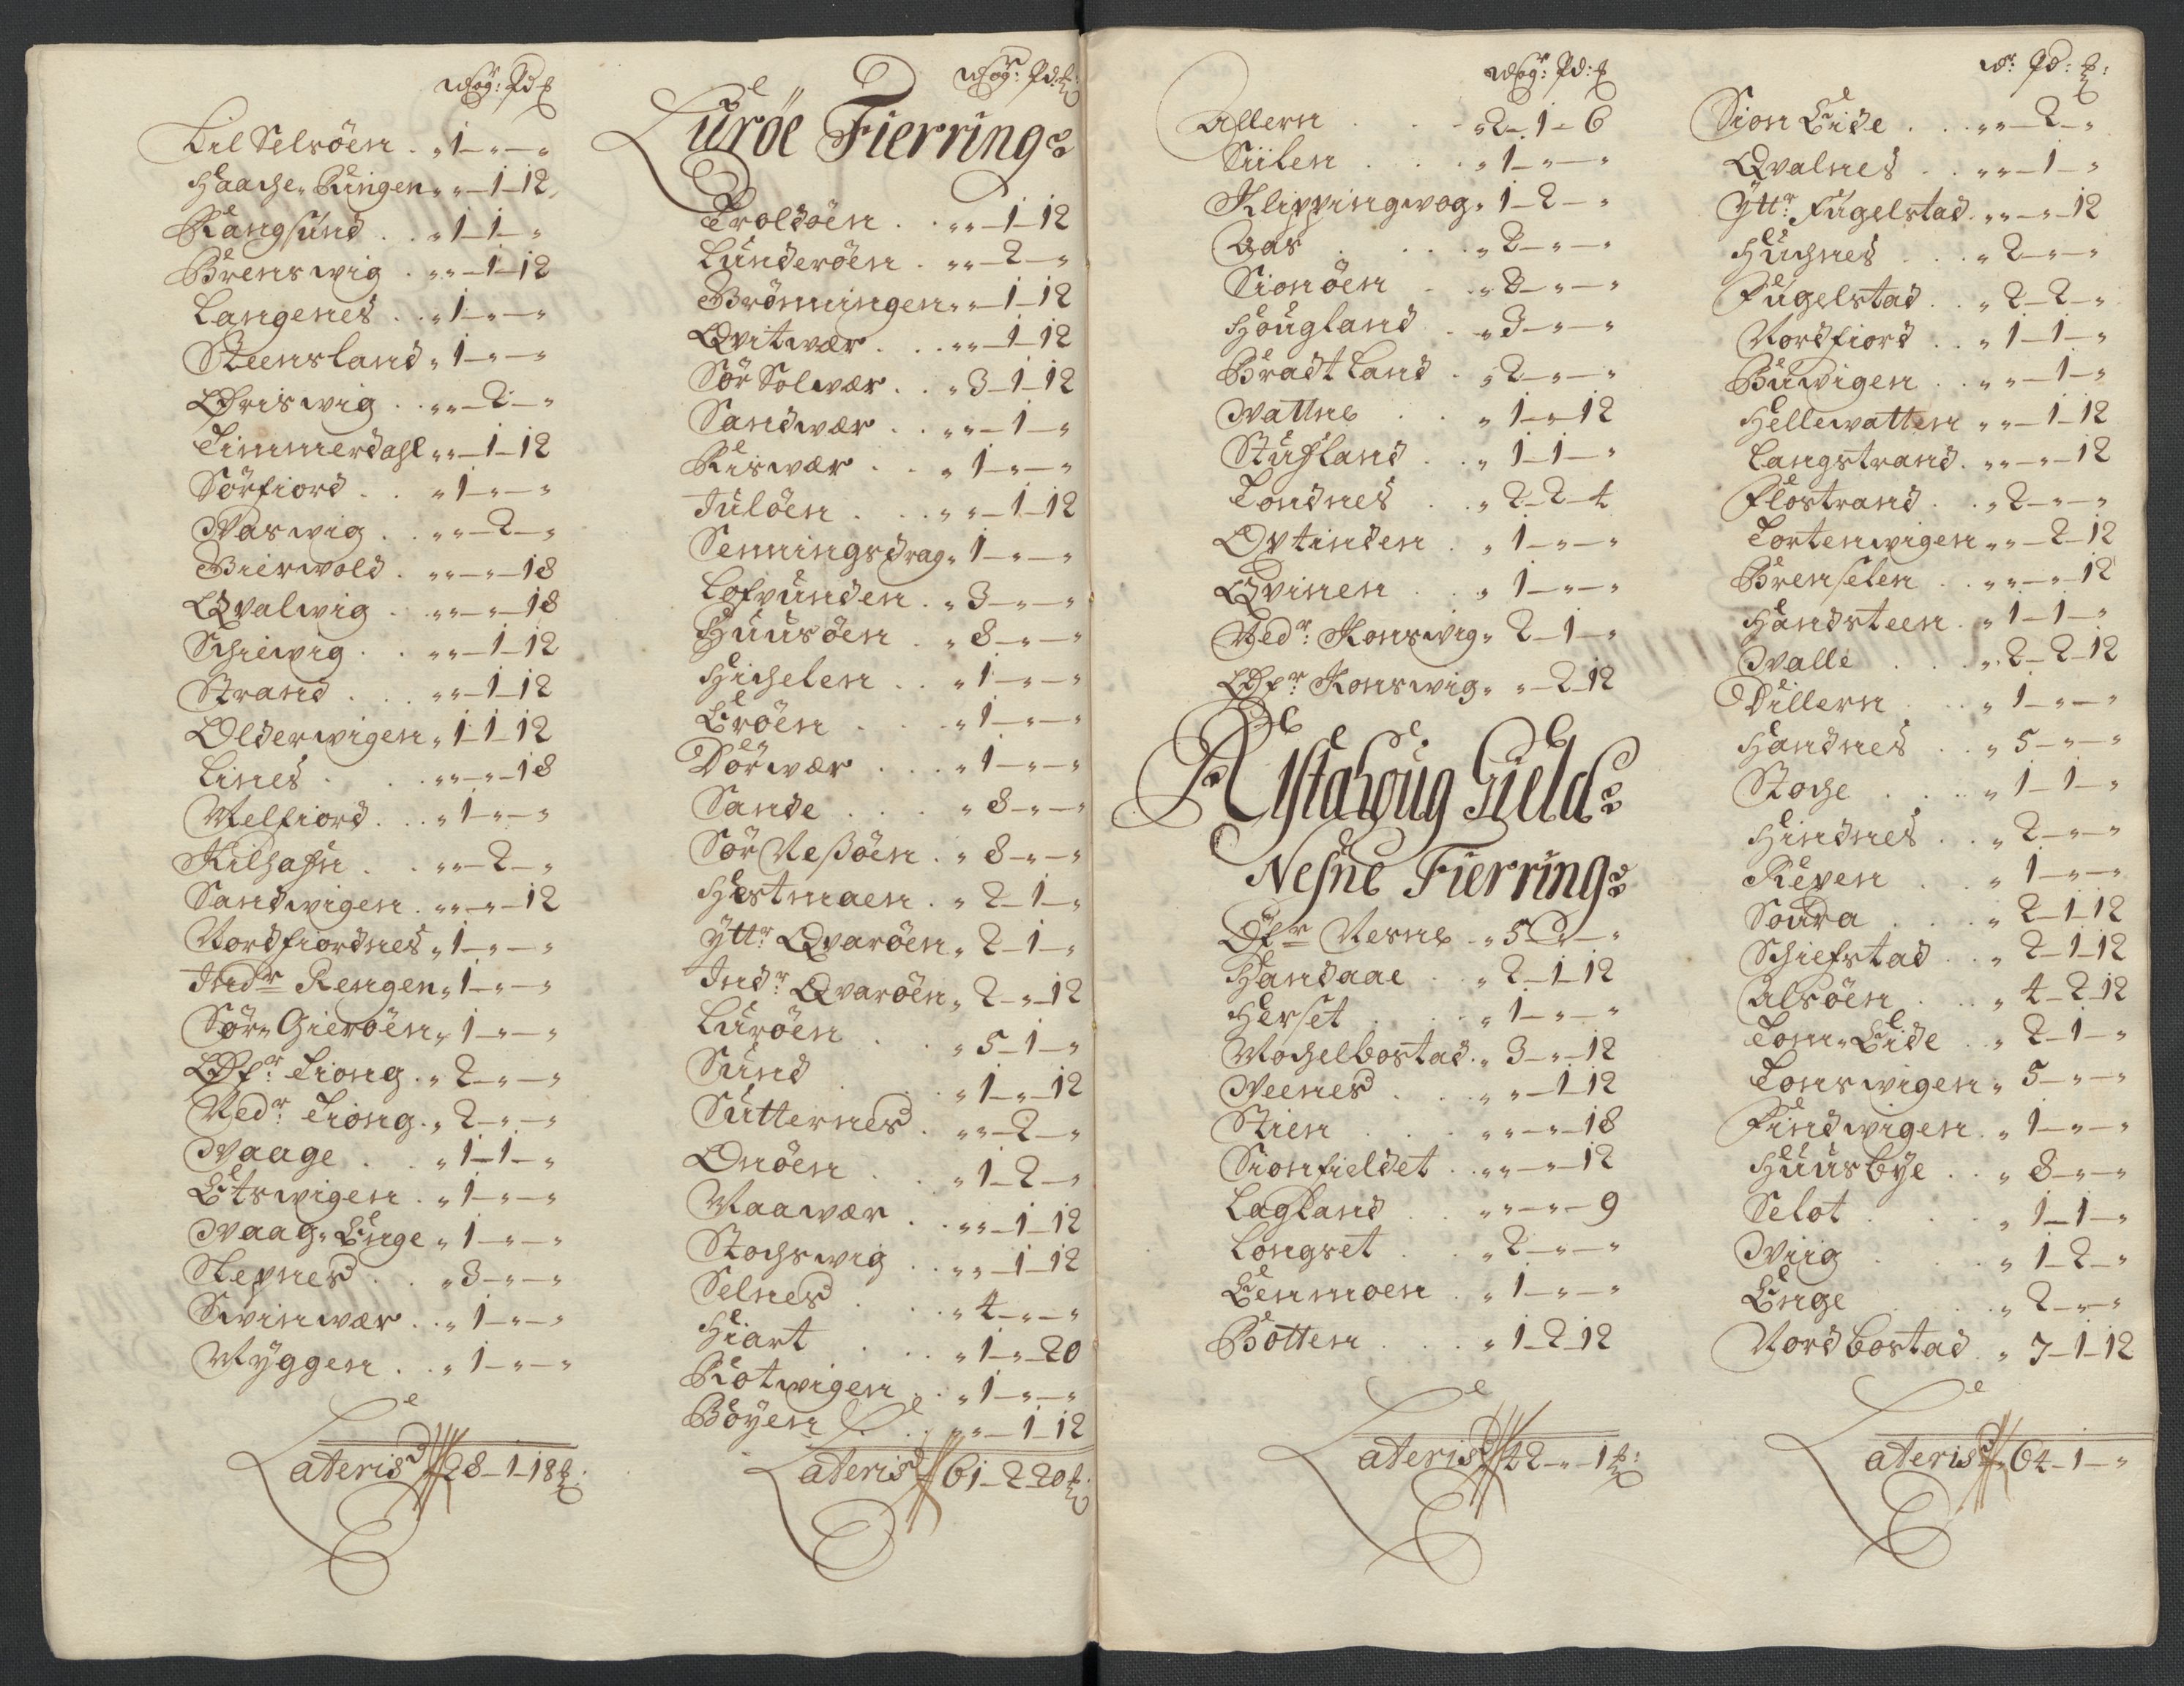 Wog: Pd ℔
Lil Selsöen . „ 1 – „ – „
Haache Ringen „ „ – 1 – 12
Rangsund . . „ 1 – 1 – „
Brenswig . „ „ – 1 – 12
Langenes . . „ 1 – „ – „
Steensland „ 1 – „ – „
Öriswig . . „ „ – 2 – „
Timmerdahl „ „ – 1 – 12
Sörfiord . . „ 1 – „ – „
Waswig . . „ „ – 2 – „
Bierwold . „ „ – „ – 18
Qvalwig . „ „ – „ – 18
Schiewig . . „ „ – 1 – 12
Strand . . . „ „ – 1 – 12
Olderwigen „ 1 – 1 – 12
Lines . . . „ „ – „ – 18
Melfiord . . „ 1 – „ – „
Kilhafn . . „ „ – 2 – „
Sandwigen . „ „ – „ – 12
Nordfiordnes „ 1 – „ – „
Indr Rengen „ 1 – „ – „
Sör Gieröen „ 1 – „ – „
Öfr: Tiong . „ 2 – „ – „
Nedr: Tiong . „ 2 – „ – „
Waage . . „ 1 – 1 – „
Etswigen . „ 1 – „ – „
Waag Enge „ 1 – „ – „
Slepnes . . „ 3 – „ – „
Swinwær . . „ 1 – „ – „
Myggen . . „ 1 – „ – „
Lateris 28 – 1 – 18 ℔:
Wog: Pd: ℔
Luröe Fierring
Troldöen . . „ „ – 1 – 12
Lunderöen . „ „ – 2 – „
Brönningen „ „ – 1 – 12
Qvitwær . . . „ „ – 1 – 12
Sör Solwær . . „ 3 – 1 – 12
Sandwær . . „ „ – 1 – „
Riswær . . „ 1 – „ – „
Julöen . . . „ „ – 1 – 12
Senningsdrag „ 1 – „ – „
Lofvunden . „ 3 – „ – „
Huusöen . „ 8 – „ – „
Hichelen . . „ 1 – „ – „
Eröen . . . „ 1 – „ – „
Dörwær . . . „ 1 – „ – „
Sande . . . „ 8 – „ – „
Sör Neßöen . „ 8 – „ – „
Hestmaen . „ 2 – 1 – „
Yttr: Qvaröen „ 2 – 1 – „
Indr: Qvaröen „ 2 – „ – 12
Luröen . . . „ 5 – 1 – „
Sund . . . „ 1 – „ – 12
Sutternes . „ „ – 2 – „
Onöen . . . „ 1 – 2 – „
Naawær . . „ „ – 1 – 12
Stochswig . . „ „ – 1 – 12
Selnes . . . „ 4 – „ – „
Hiart . . . „ 1 – „ – 20
Rotwigen . . „ 1 – „ – „
Böyen . . „ „ – 1 – 12
Lateris 61 – 2 – 20 ℔:
Wog: Pd: ℔
Allern . . . „ 2 – 1 – 6
Siilen . . . „ 1 – „ – „
Klippingwog „ 1 – 2 – „
Aas . . . „ 2 – „ – „
Sionöen . . „ 2 – „ – „
Hougland . „ 3 – „ – „
Bradtland . „ 2 – „ – „
Wattne . . „ 1 – „ – 12
Stuhland . . „ 1 – 1 – „
Tondnes . . „ 2 – 2 – 4
Optinden . „ 1 – „ – „
Qvinen . . „ 1 – „ – „
Nedr: Konswig „ 2 – 1 – „
Öfr: Konswig „ „ – 2 – 12
Alstahoug Gield:
Nesne Fierring:
Öfr Nesne . „ 5 – „ – „
Handaae . „ 2 – 1 – 12
Herset . . . „ 1 – „ – „
Mochelbostad . „ 3 – „ – 12
Neenes . . „ „ – 1 – 12
Stien . . . „ „ – „ – 18
Sionfieldet . „ „ – „ – 12
Lagland . . „ „ – „ – 9
Longset . . „ 2 – „ – „
Eenmoen . „ 1 – „ – „
Botten . . . „ 1 – 2 – 12
Lateris 42 – „ – 1 ℔:
W: Pd: ℔:
Sion Eide . . . „ „ – 2 – „
Qvalnes . . „ „ – 1 – „
Yttr: Fugelstad . „ „ – „ – 12
Huchnes . . . „ 2 – „ – „
Fugelstad . . „ 2 – 2 – „
Nordfiord . . „ 1 – 1 – „
Buwigen . . „ „ – 1 – „
Hellewatten „ „ – 1 – 12
Langstrand . „ „ – „ – 12
Flostrand . . „ 2 – „ – „
Tortenwigen „ „ – 2 – 12
Brenselen . . „ „ – „ – 12
Handsteen . „ 1 – 1 – „
Walle . . . „ 2 – 2 – 12
Dillern . . . „ 1 – „ – „
Handnes . . „ 5 – „ – „
Stoche . . . „ 1 – 1 – „
Hindnes . . „ 2 – „ – „
Repen . . „ 1 – „ – „
Soura . . . „ 2 – 1 – 12
Schiefstad . „ 2 – 1 – 12
Alsöen . . . „ 4 – 2 – 12
Tom Eide . . „ 2 – 1 – „
Tonswigen „ 5 – „ – „
Findwigen . „ 1 – „ – „
Huusbye . . „ 8 – „ – „
Selot . . . „ 1 – 1 – „
Wiig . . . „ 1 – 2 – „
Enge . . . „ 2 – „ – „
Nordbostad . „ 7 – 1 – 12
Lateris 64 – 1 – „